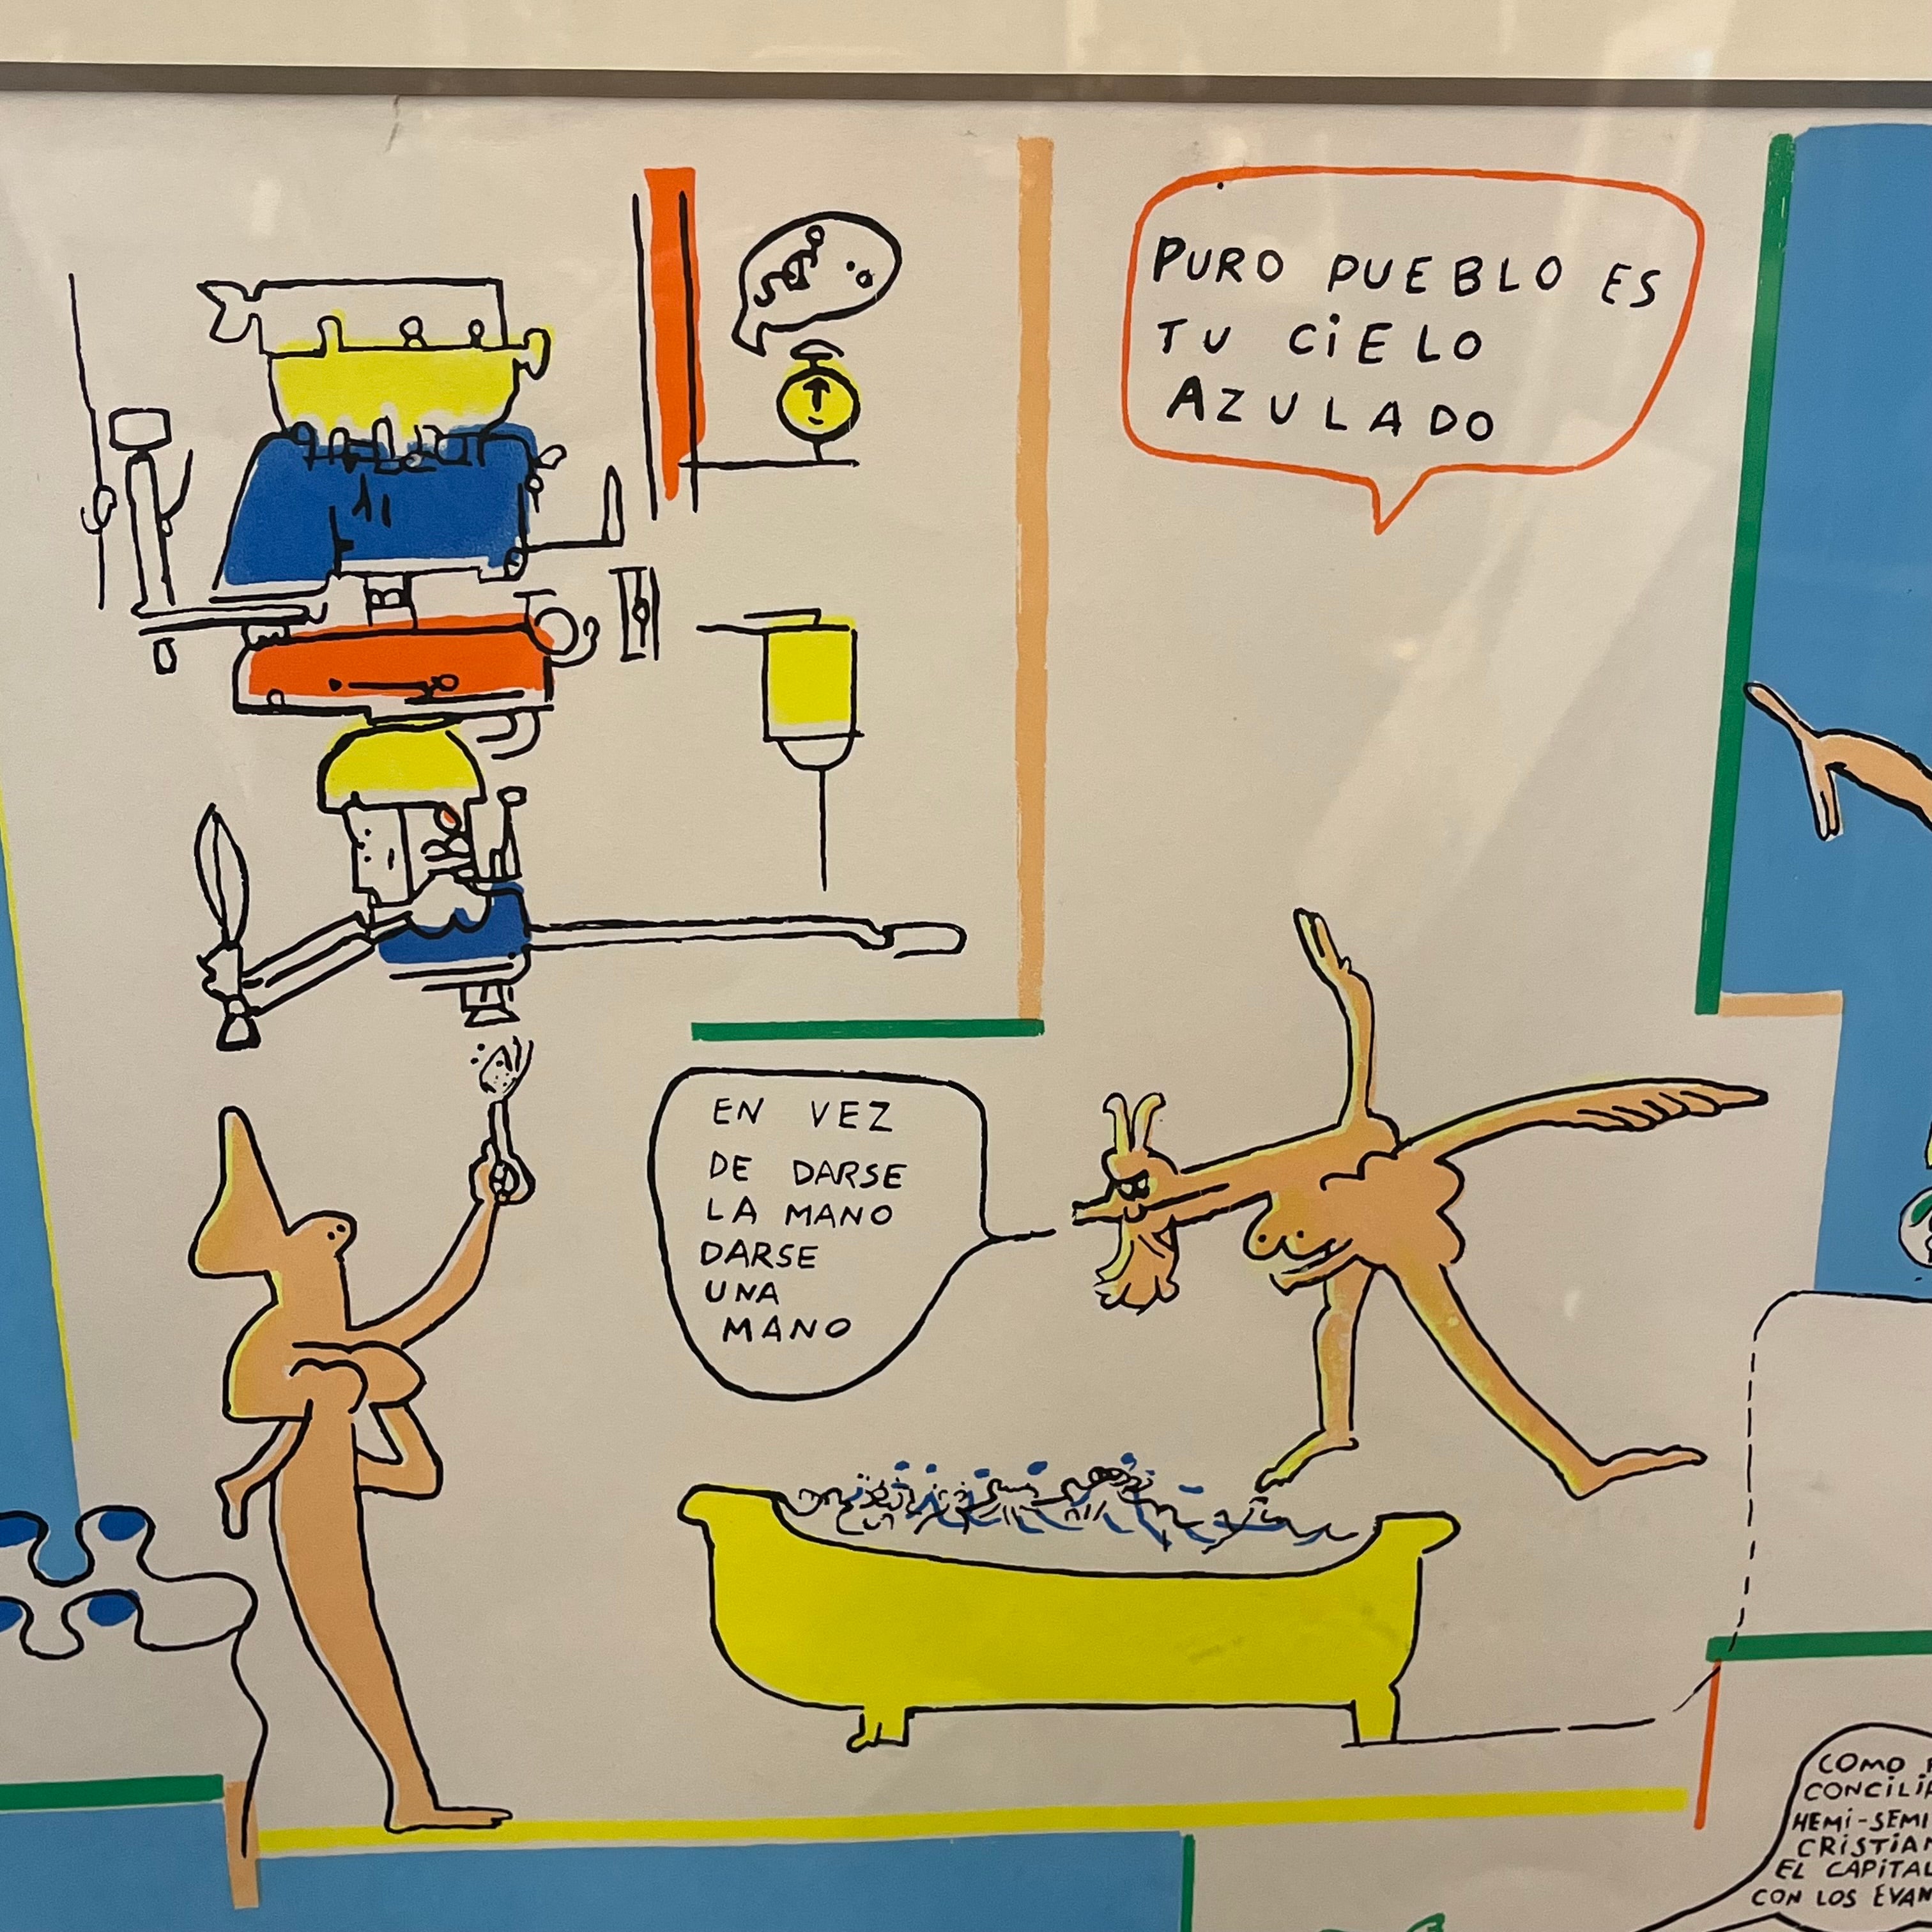 PURO PUEBLO ES
TU CiELO
AZULADO
EN VEZ
DE DARSE
LA MANO
DARSE
UNA
MANO
COMO
CONCiLiA
HEMi-SEMI
CRiSTIAN
EL CAPiTAL
CON LOS EVAN